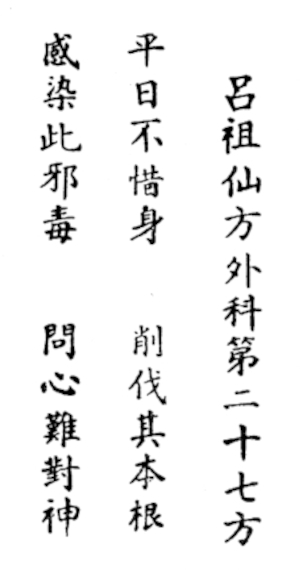 呂祖仙方外科第二十七方
平日不惜身　削伐其本根
感染此邪毒　問心難對神